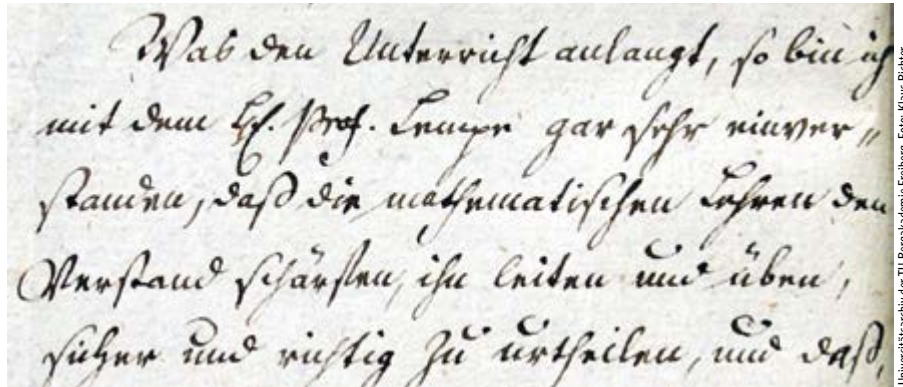 Was den Unterricht anlangt, so bin ich
mit dem H. Prof. Lempe gar sehr einver„
standen, daß die mathematischen Lehren den
Verstand schärfen, ihn leiten und üben,
sicher und richtig zu urtheilen, und daß,
Universitätsarchiv der TU Bergakademie Freiberg, Foto: Klaus Richter